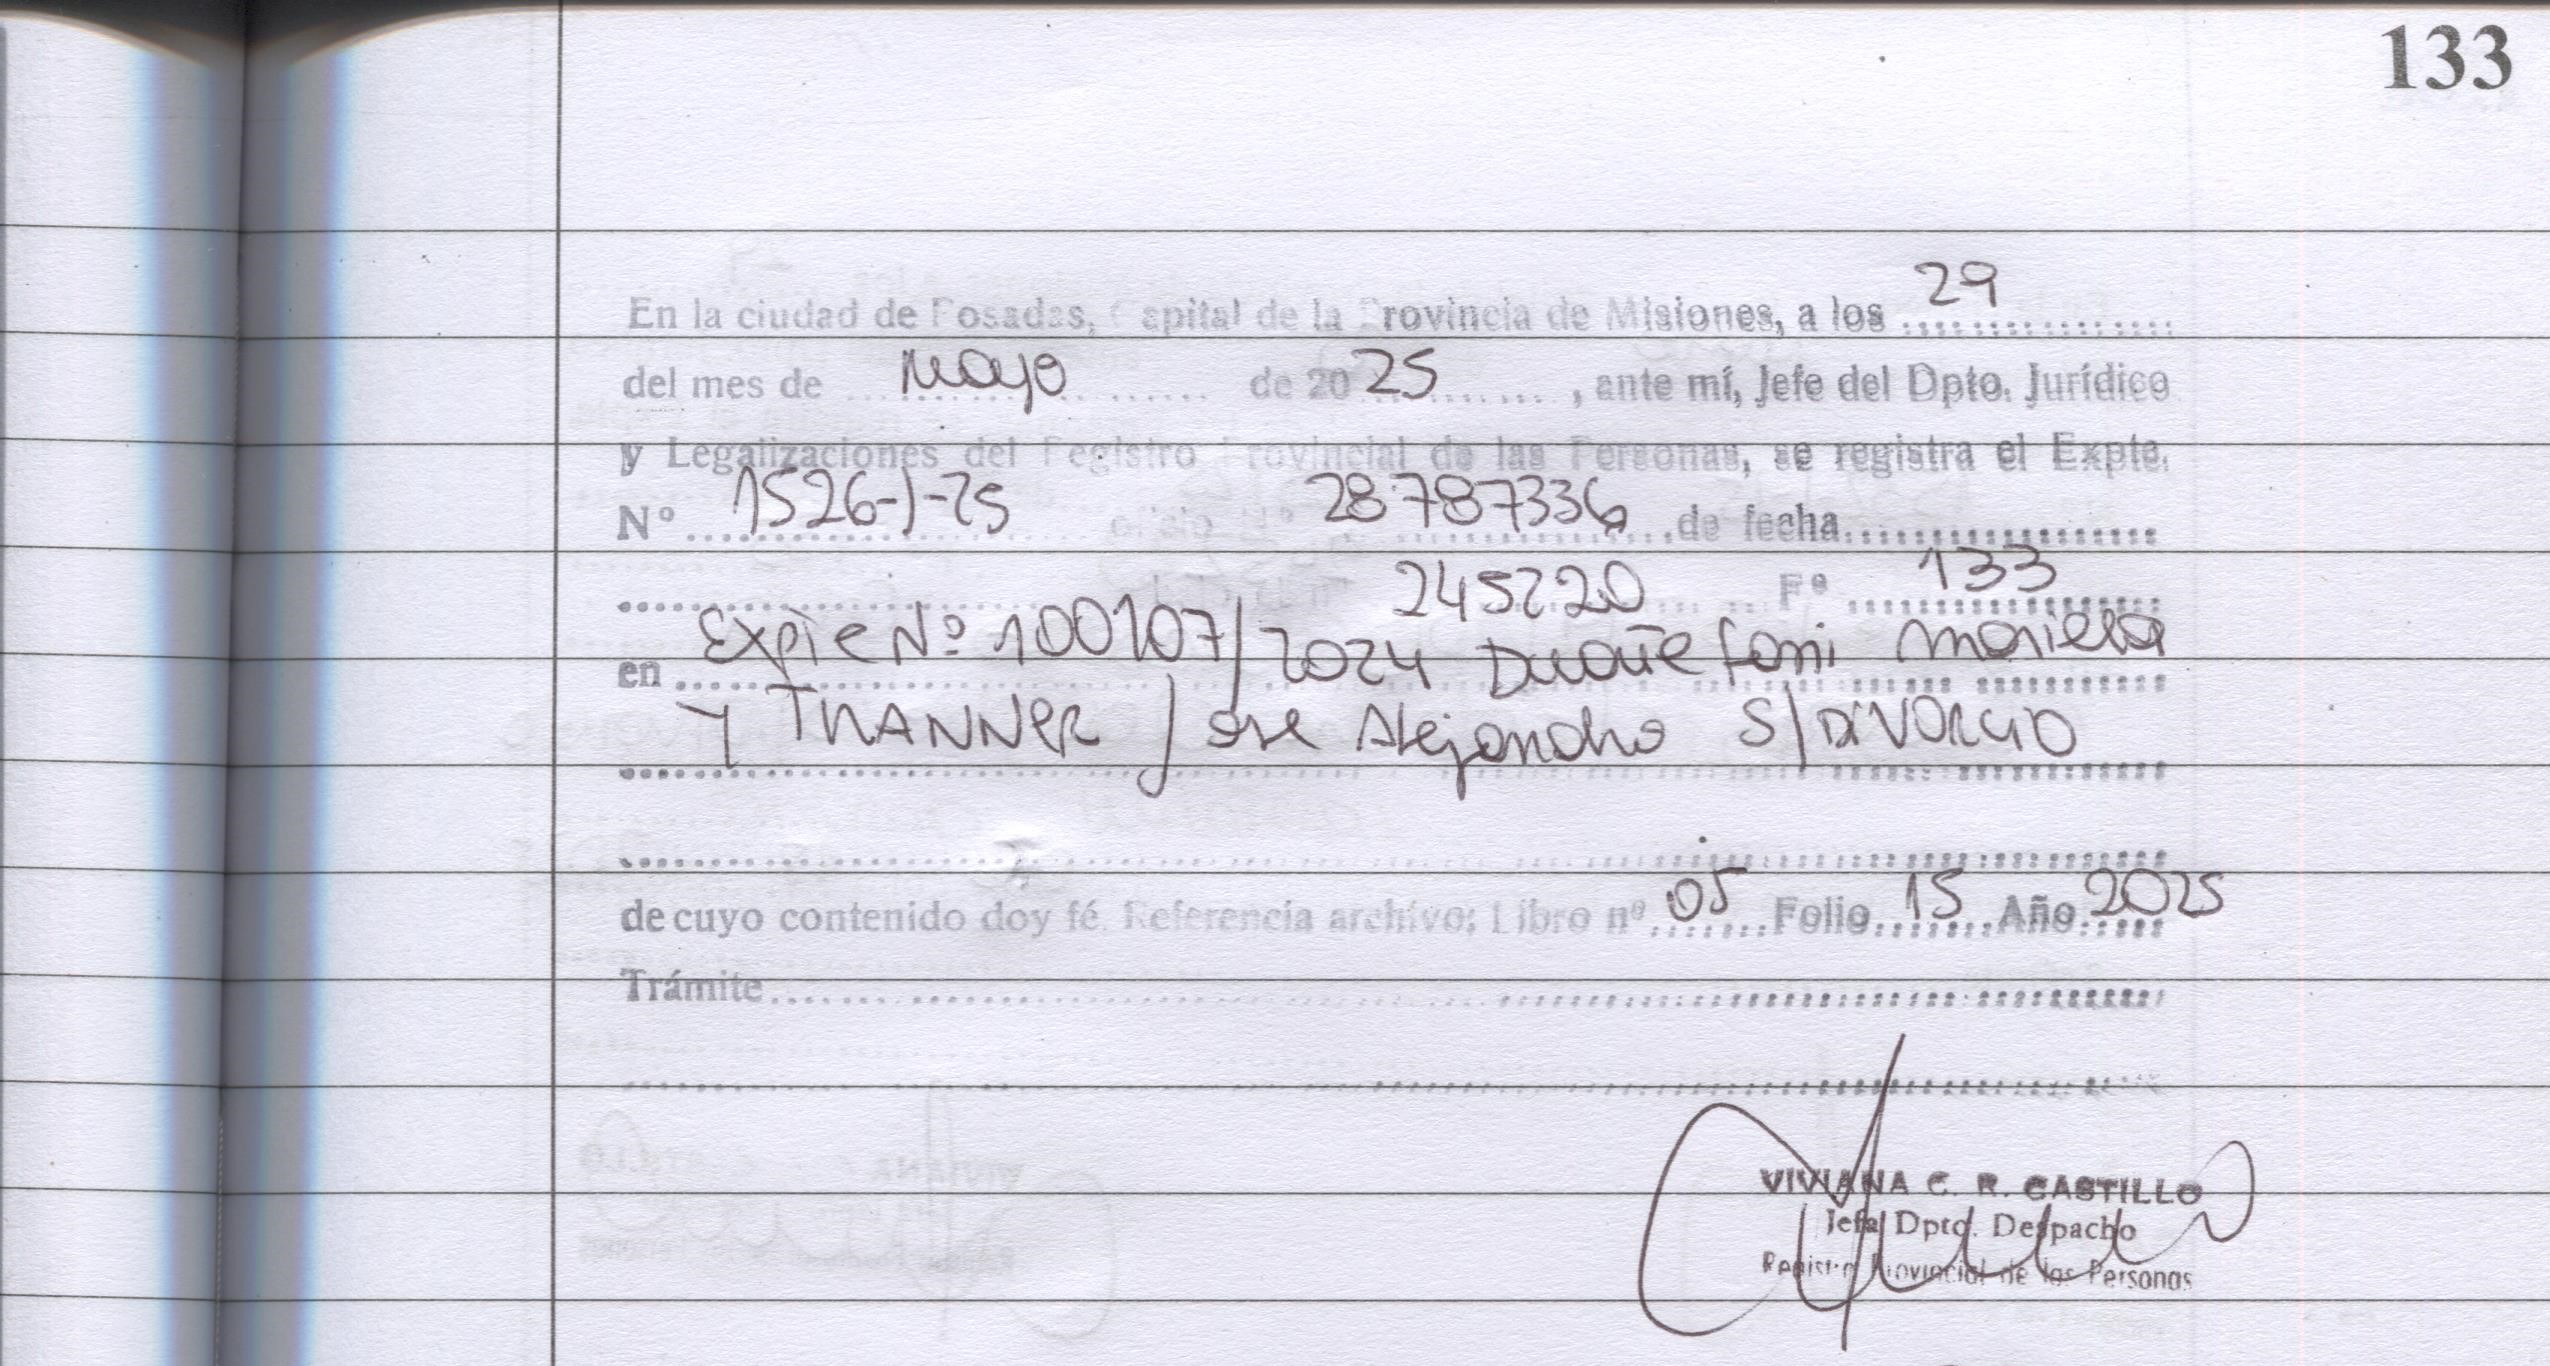 133
En la ciudad de Posadas, Capital de la Provincia de Misiones, a los 29
del mes de mayo de 20 25, ante mí, Jefe del Dpto. Jurídico
y Legalizaciones del Registro Provincial de las Personas, se registra el Expte.
Nº 1526-J-25 oficio Nº 28787336 de fecha
245220 Fº 133
en Expte Nº 100107/2024 Duarte Mariela
y THANNER Jose Alejandro S/DIVORCIO
de cuyo contenido doy fé. Referencia archivo: Libro nº 05 Folio 15 Año 2025
Trámite
VIVIANA C. R. CASTILLO
Jefa Dpto. Despacho
Registro Provincial de las Personas